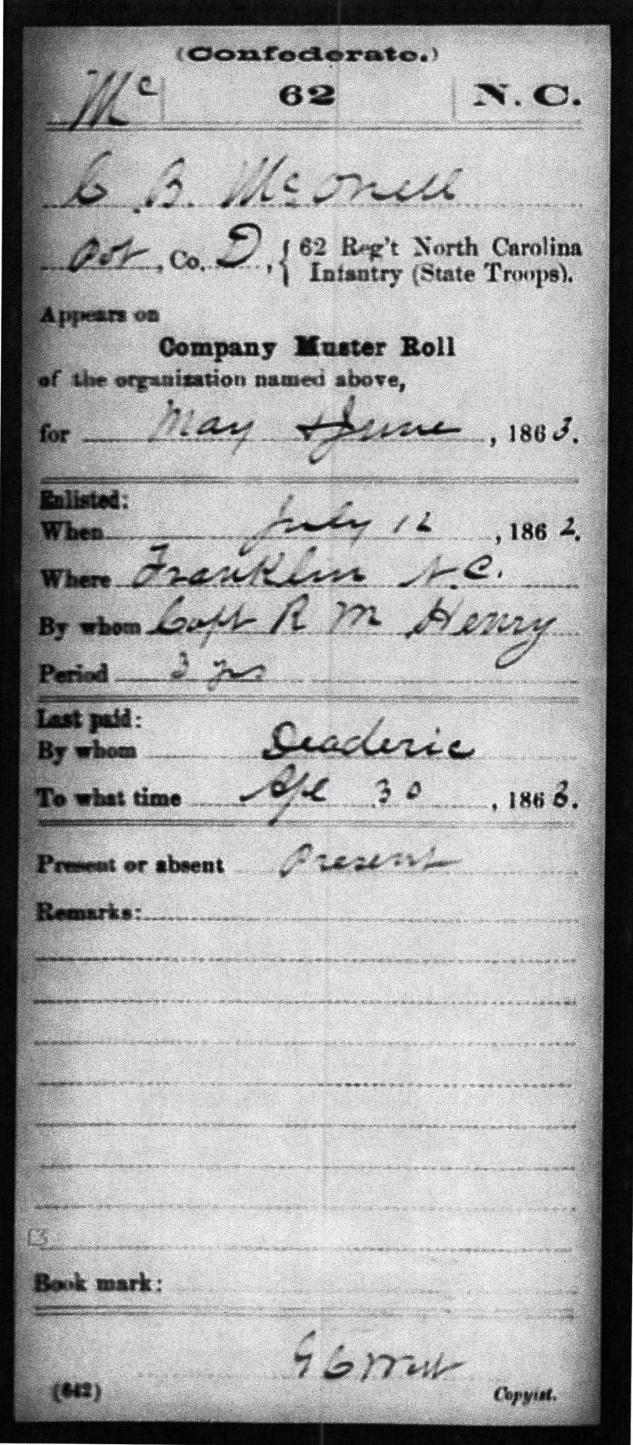 (Confederate.)
Mc 62 N. C.
C B. McOnell
Pvt, Co. D, { 62 Reg't North Carolina
Infantry (State Troops).
Appears on
Company Muster Roll
of the organization named above,
for May & June, 1863.
Enlisted:
When July 12, 1862.
Where Franklin N.C.
By whom Capt R M Henry
Period 3 yrs
Last paid:
By whom Deaderic
To what time Apl 30, 1863.
Present or absent Present
Remarks:
Book mark:
(642) Copyist.